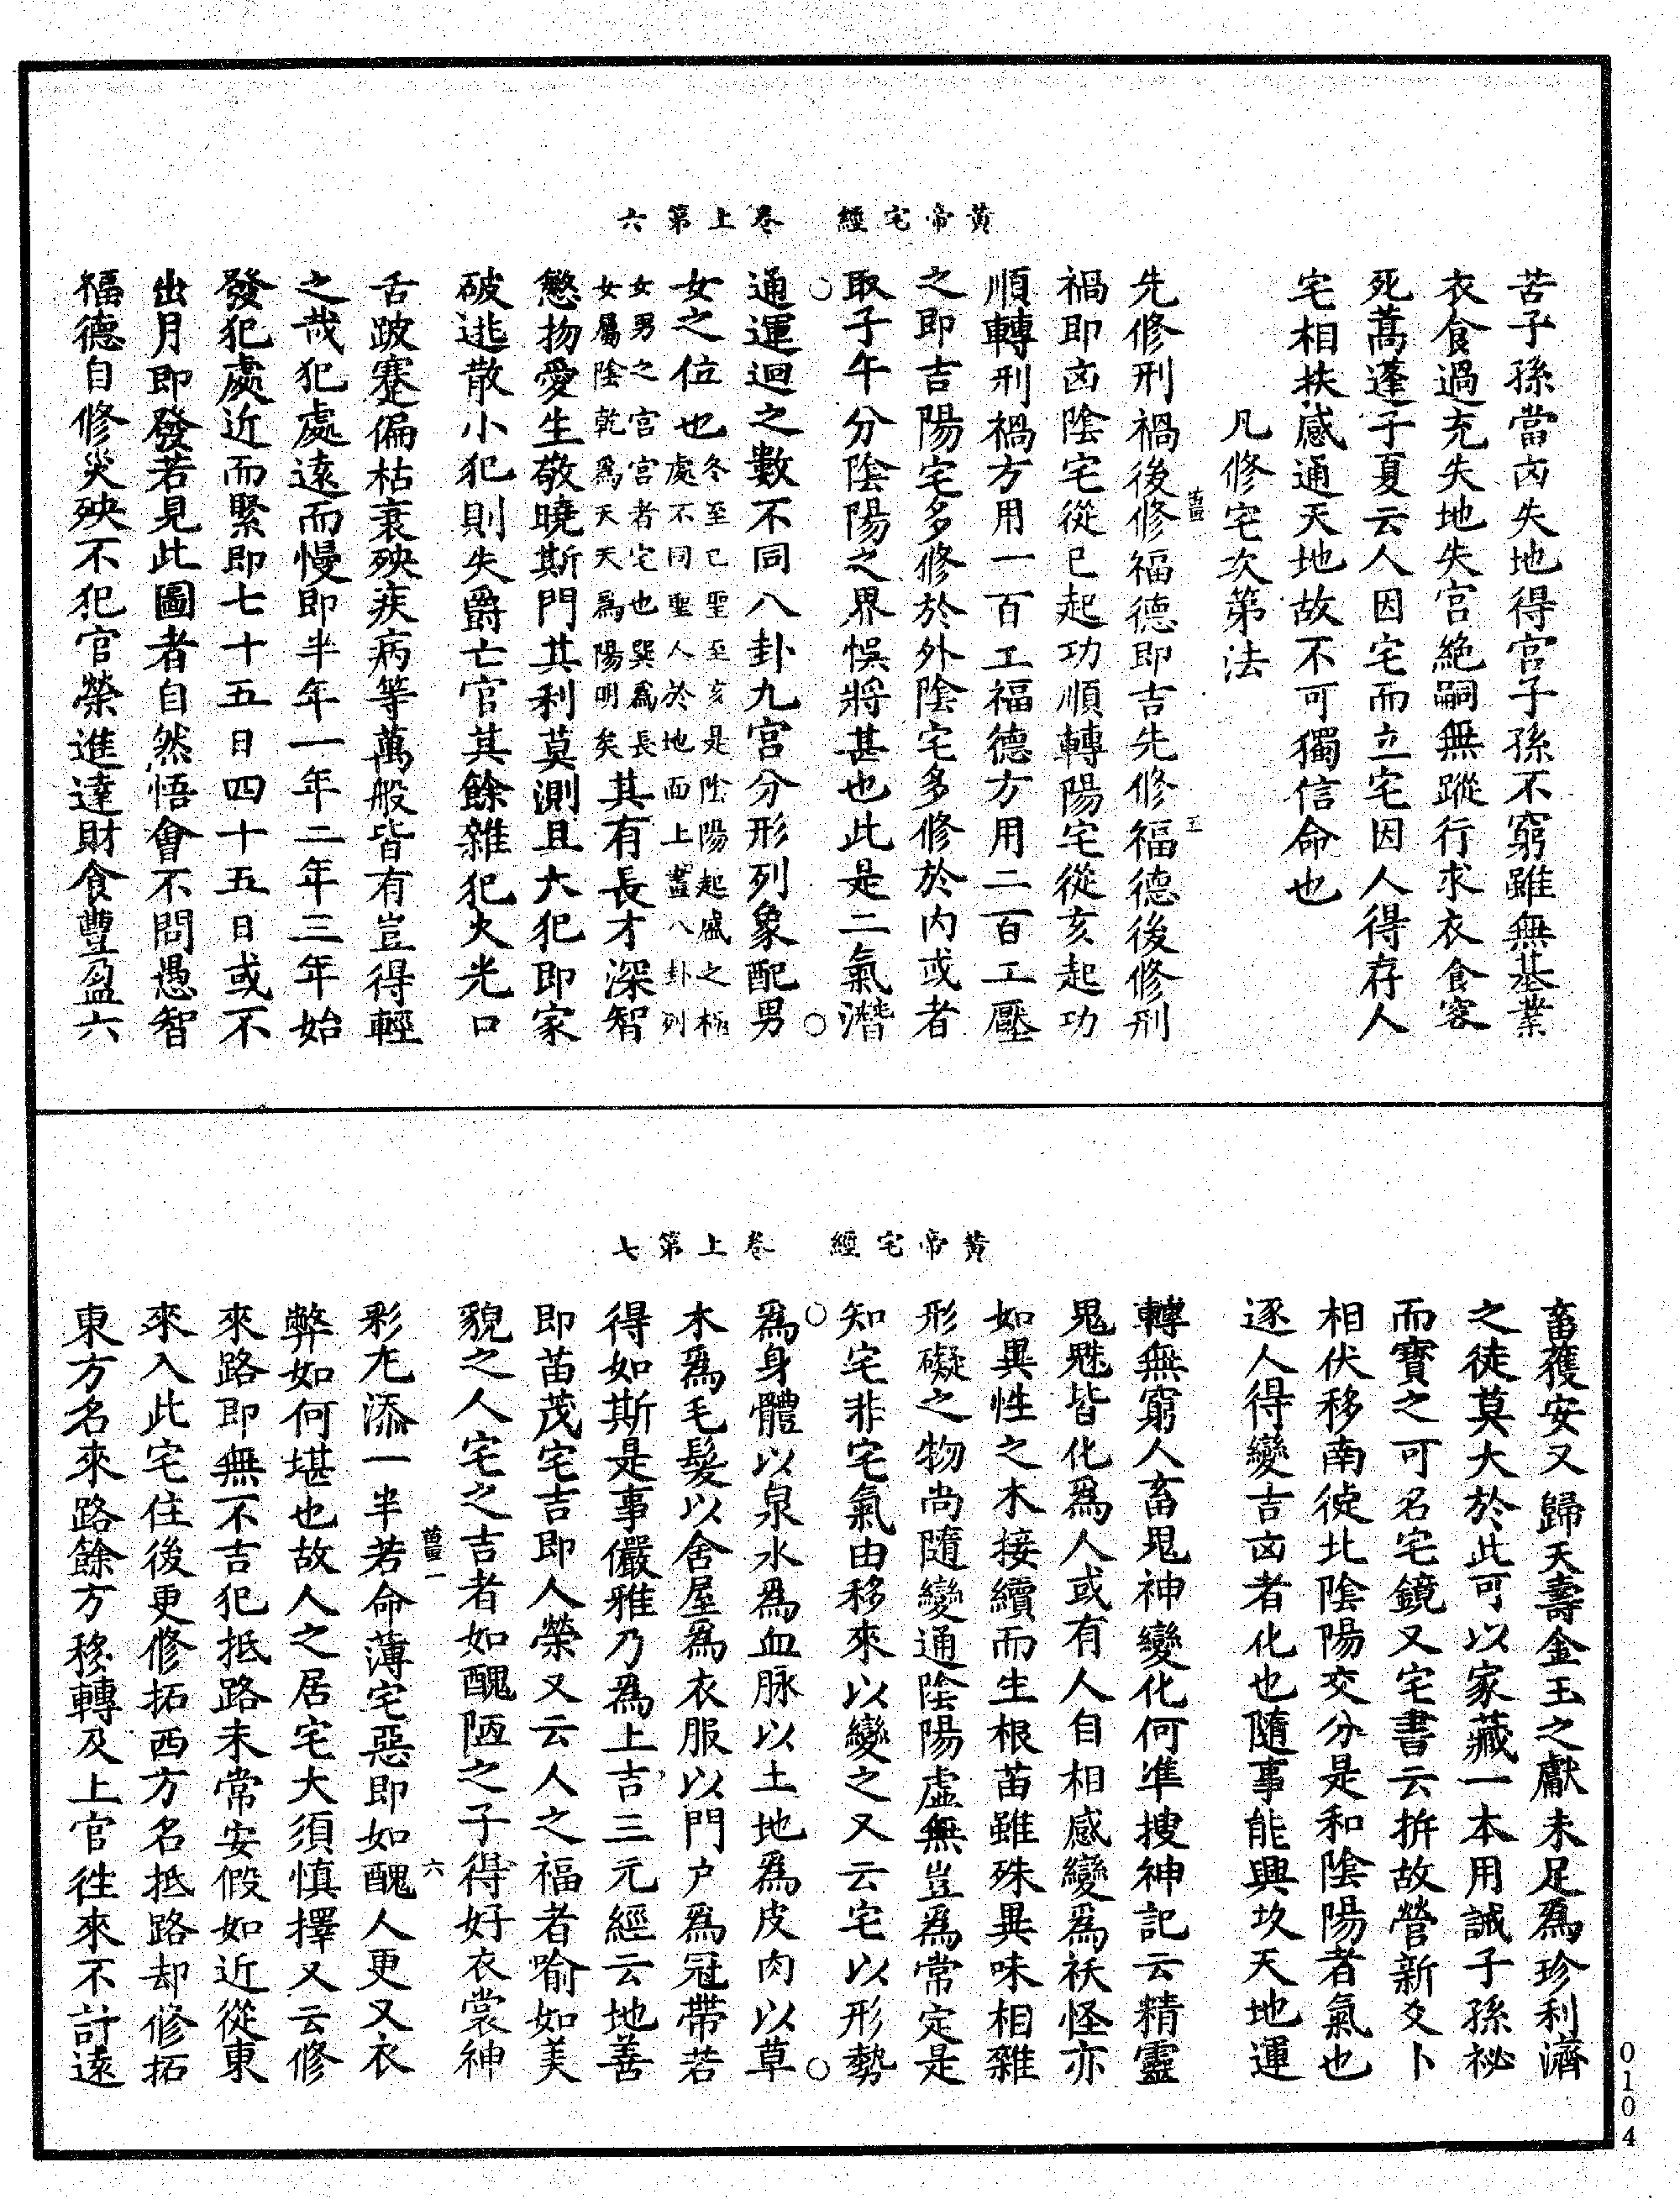 黃帝宅經　卷上第六
苦子孫當凶失地得宮子孫不窮雖無基業
衣食過充失地失宮絕嗣無蹤行求衣食客
死蒿蓬子夏云人因宅而立宅因人得存人
宅相扶感通天地故不可獨信命也
凡修宅次第法
先修刑禍後修福德即吉先修福德後修刑
禍即凶陰宅從巳起功順轉陽宅從亥起功
順轉刑禍方用一百工福德方用二百工壓
之即吉陽宅多修於外陰宅多修於內或者
取子午分陰陽之界悞將甚也此是二氣潛
通運迴之數不同八卦九宮分形列象配男
女之位也冬至巳聖至亥是陰陽起盛之極
處不同聖人於地面上畫八卦列
女男之宮宮者宅也巽為長
女屬陰乾為天天為陽明矣其有長才深智
慜物愛生敬曉斯門其利莫測且大犯即家
破逃散小犯則失爵亡官其餘雜犯火光口
舌跛蹇偏枯衰殃疾病等萬般皆有豈得輕
之哉犯處遠而慢即半年一年二年三年始
發犯處近而緊即七十五日四十五日或不
出月即發若見此圖者自然悟會不問愚智
福德自修災殃不犯官榮進達財食豐盈六
黃帝宅經　卷上第七
畜獲安又歸天壽金玉之獻未足為珍利濟
之徒莫大於此可以家藏一本用誡子孫祕
而寶之可名宅鏡又宅書云拚故營新爻卜
相伏移南徙北陰陽交分是和陰陽者氣也
逐人得變吉凶者化也隨事能興故天地運
轉無窮人畜鬼神變化何準搜神記云精靈
鬼魅皆化為人或有人自相感變為祅怪亦
如異性之木接續而生根苗雖殊異味相雜
形礙之物尚隨變通陰陽虛無豈為常定是
知宅非宅氣由移來以變之又云宅以形勢
為身體以泉水為血脉以土地為皮肉以草
木為毛髮以舍屋為衣服以門户為冠帶若
得如斯是事儼雅乃為上吉三元經云地善
即苗茂宅吉即人榮又云人之福者喻如美
貌之人宅之吉者如醜陋之子得好衣裳神
彩尤添一半若命薄宅惡即如醜人更又衣
弊如何堪也故人之居宅大須慎擇又云修
來路即無不吉犯抵路未常安假如近從東
來入此宅住後更修拓西方名抵路却修拓
東方名來路餘方移轉及上官往來不計遠
0104